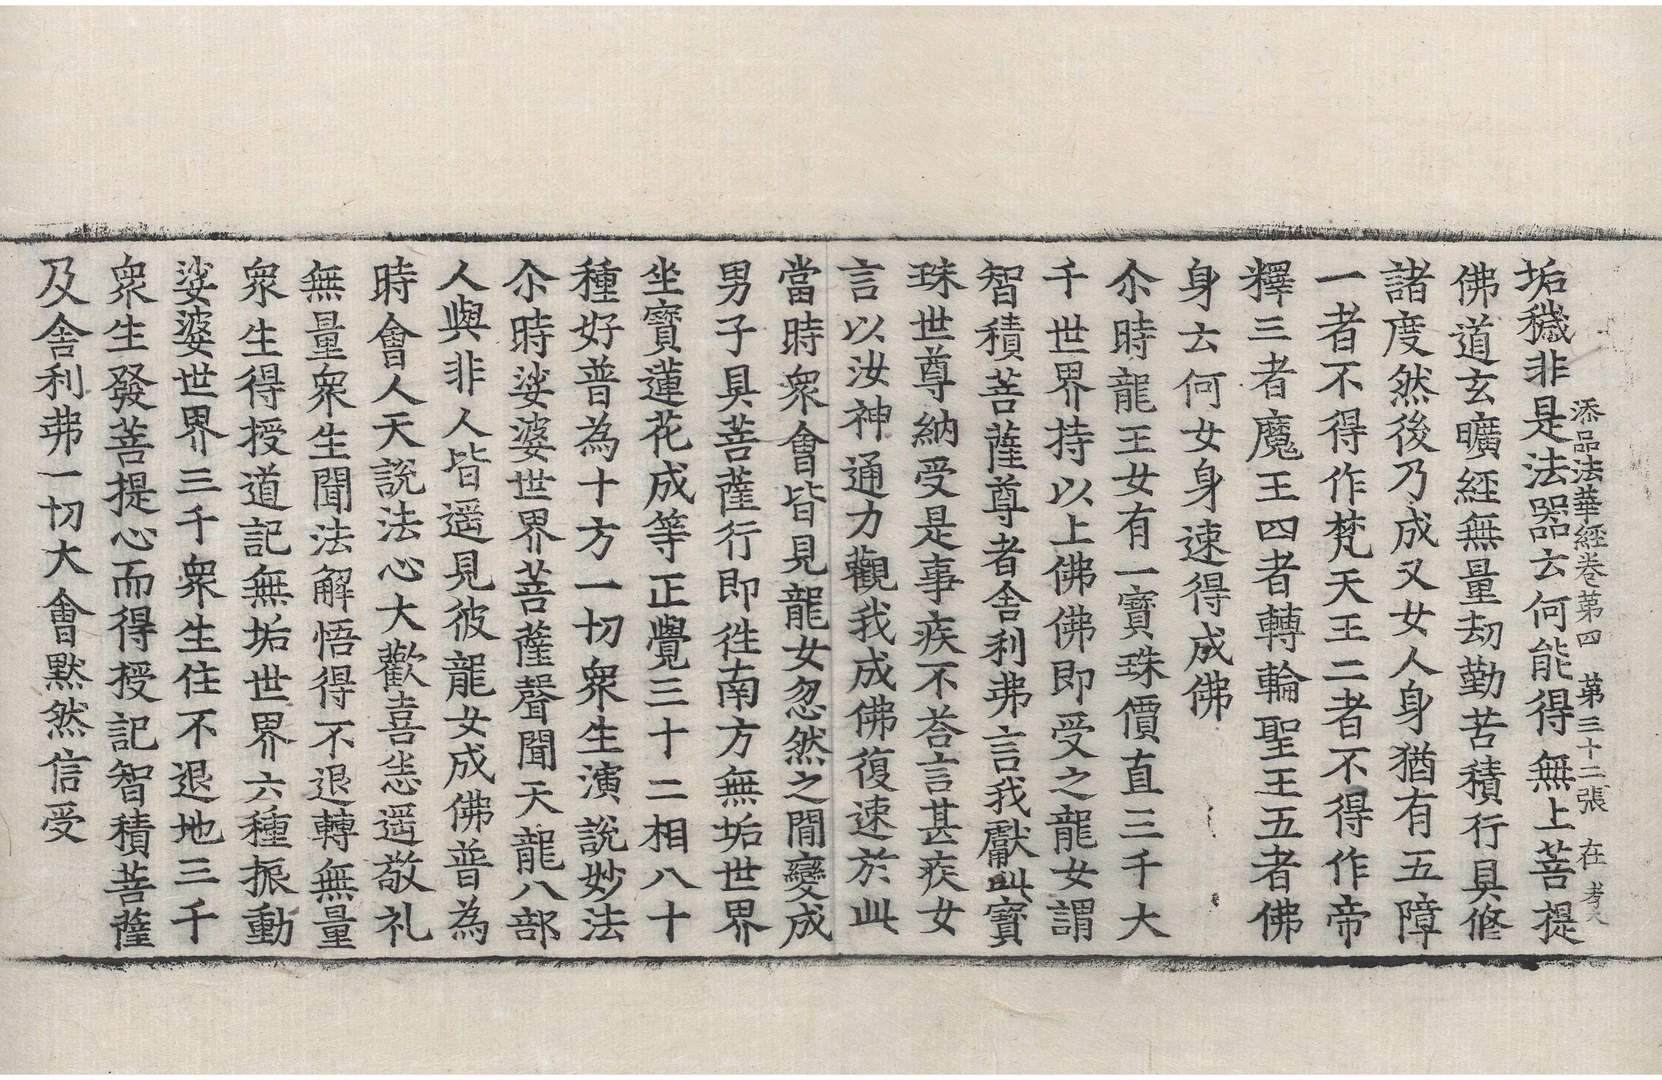 添品法華經卷第四 第三十二張 在
垢穢非是法器云何能得無上菩提
佛道玄曠經無量劫勤苦積行具修
諸度然後乃成又女人身猶有五障
一者不得作梵天王二者不得作帝
釋三者魔王四者轉輪聖王五者佛
身云何女身速得成佛
尒時龍王女有一寶珠價直三千大
千世界持以上佛佛即受之龍女謂
智積菩薩尊者舍利弗言我獻此寶
珠世尊納受是事疾不荅言甚疾女
言以汝神通力觀我成佛復速於此
當時衆會皆見龍女忽然之閒變成
男子具菩薩行即徃南方無垢世界
坐寶蓮花成等正覺三十二相八十
種好普為十方一切衆生演說妙法
尒時娑婆世界菩薩聲聞天龍八部
人與非人皆遥見彼龍女成佛普為
時會人天說法心大歡喜悉遥敬礼
無量衆生聞法解悟得不退轉無量
衆生得授道記無垢世界六種振動
娑婆世界三千衆生住不退地三千
衆生發菩提心而得授記智積菩薩
及舍利弗一切大會默然信受